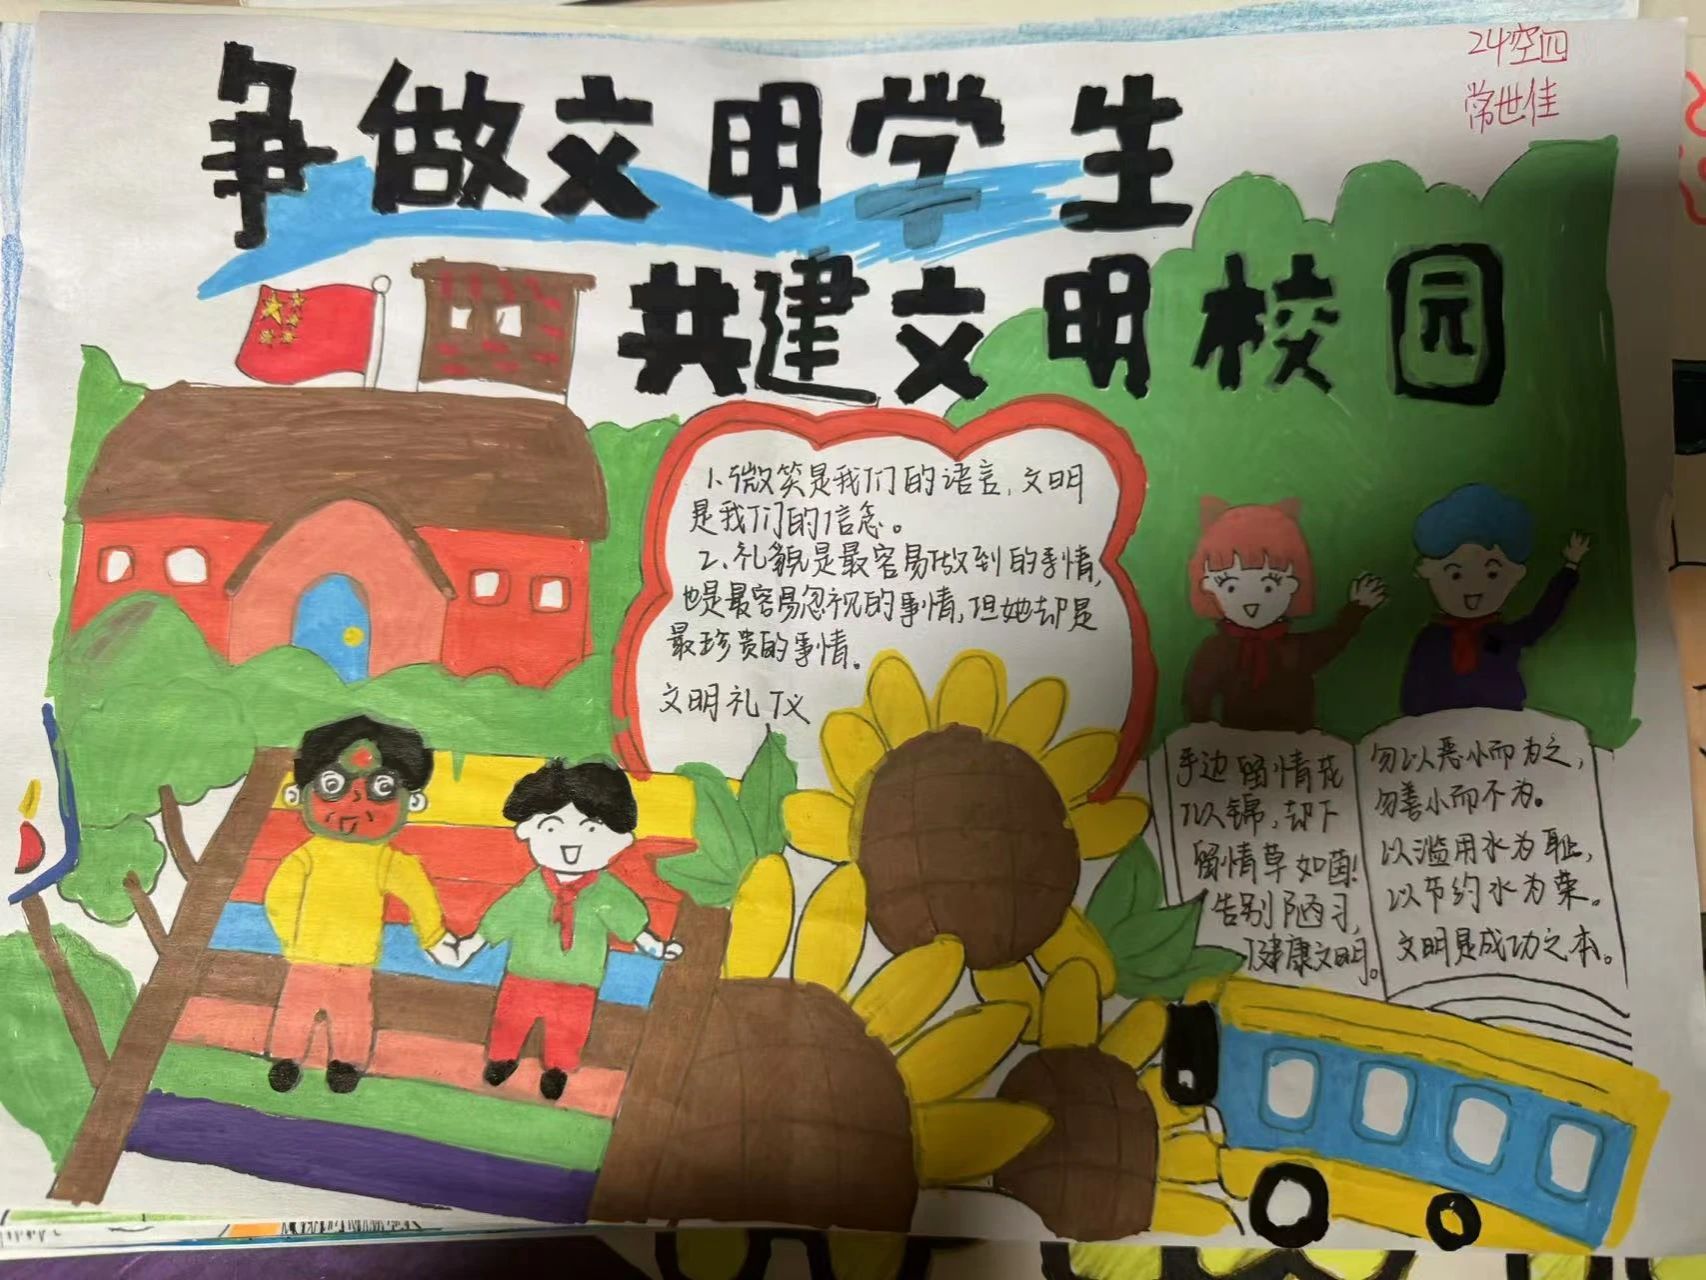 24空四
常世佳
争做文明学生
共建文明校园
1、微笑是我们的语言，文明
是我们的信念。
2、礼貌是最容易做到的事情，
也是最容易忽视的事情，但她却是
最珍贵的事情。
文明礼仪
手边留情花
似锦，却下
留情草如茵！
告别陋习，
健康文明。
勿以恶小而为之，
勿善小而不为。
以滥用水为耻，
以节约水为荣。
文明是成功之本。